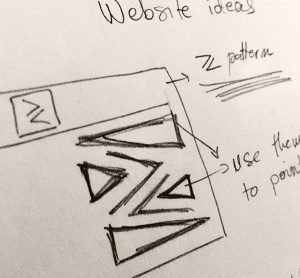 Website ideas
Z pattern
Z
use them
to point